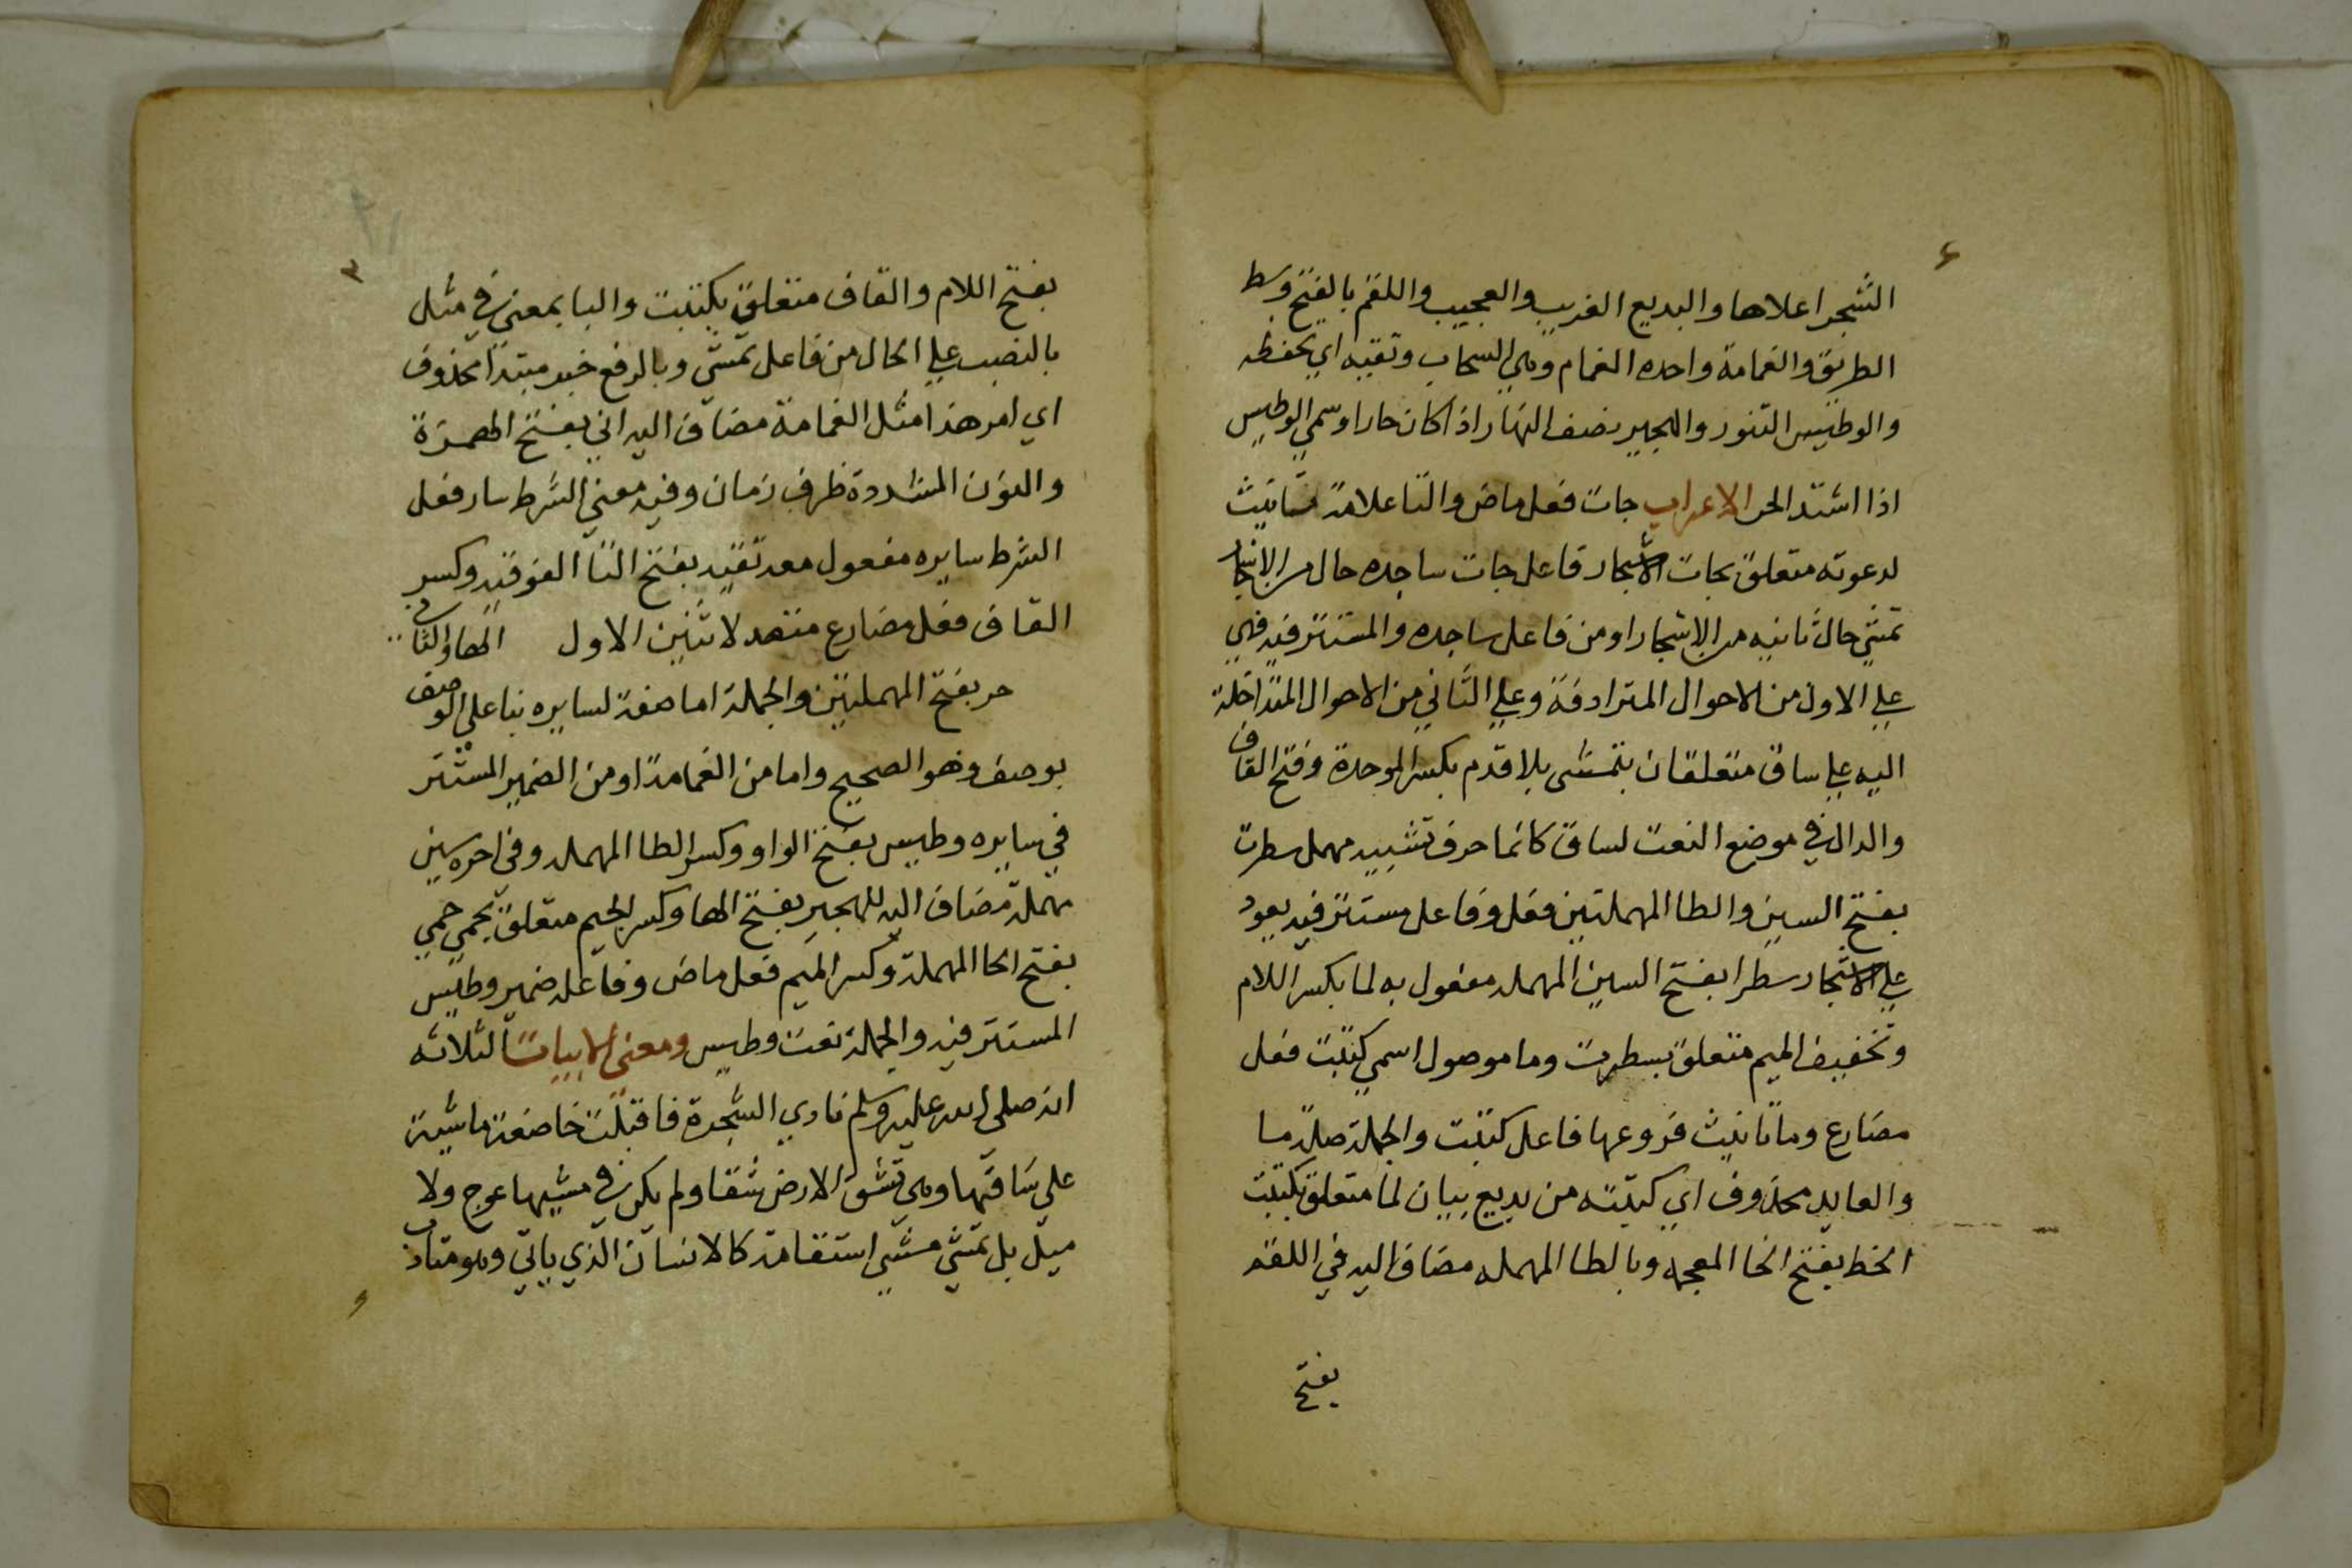 الشجر اعلاها والبديع الغريب والعجيب واللقم بالفتح وسط
الطريق والغمامة واحده الغمام وهي السحاب وتقيه اي تحفظه
والوطيس التنور والهجير نصف النهار اذا كان حارا وسمي الوطيس
اذا اشتد الحر الاعراب جات فعل ماض والتا علامة تانيث
لدعوته متعلق بجات الاشجار فاعل جات ساجده حال من الاشجار
تمشي حال ثانيه من الاشجار او من فاعل ساجده والمستتر فيه فهي
علي الاول من الاحوال المترادفة وعلي الثاني من الاحوال المتداخلة
اليه علي ساق متعلقان بتمشى بلا قدم بكسر الموحدة وفتح القاف
والدال في موضع النعت لساق كانما حرف تشبيه مهمل سطرت
بفتح السين والطا المهملتين فعل وفاعل مستتر فيه يعود
علي الاشجار سطرا بفتح السين المهمله مفعول به لما بكسر اللام
وتخفيف الميم متعلق بسطرت وما موصول اسمي كتبت فعل
مضارع وماتانيث فروعها فاعل كتبت والجملة صلة ما
والعايد محذوف اي كتبته من بديع بيان لما متعلق بكتبت
الخط بفتح الخا المعجمه وبالطا المهمله مضاف اليه في اللقم
بفتح
بفتح اللام والقاف متعلق بكتبت والبا بمعنى في مثل
بالنصب علي الحال من فاعل تمشي وبالرفع خبر مبتدا محذوف
اي امر هذا مثل الغمامة مضاف اليه اني بفتح الهمزة
والنون المشددة ظرف زمان وفيه معني الشرط سار فعل
الشرط سايره مفعول معه تقيه بفتح التا الفوقيه وكسر
القاف فعل مضارع متعد لاثنين الاول الها والثاني
حر بفتح المهملتين والجملة اما صفة لسايره بنا علي الوصف
يوصف وهو الصحيح واما من الغمامة او من الضمير المستتر
في سايره وطيس بفتح الواو وكسر الطا المهمله وفي اخره سين
مهملة مضاف اليه للهجير بفتح الها وكسر الجيم متعلق بحمي حمي
بفتح الحا المهملة وكسر الميم فعل ماض وفاعله ضمير وطيس
المستتر فيه والجملة نعت وطيس ومعنى الابيات الثلاثه
انه صلى الله عليه وسلم نادي الشجرة فاقبلت خاضعة ماشية
على ساقها وهي تشق الارض شقا ولم يكن في مشيها عوج ولا
ميل بل تمشي مشي استقامة كالانسان الذي ياتي وهو متادب